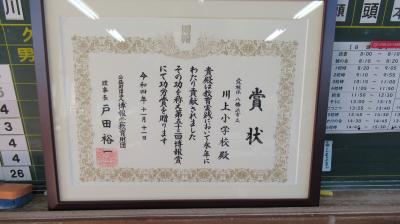 賞状
愛媛県八幡浜市立
川上小学校殿
貴殿は教育実践において永年に
わたり貢献されました
その功を称え第五十三回博報賞
にて功労賞を贈ります
令和四年十一月十一日
公益財団法人博報堂教育財団
理事長 戸田裕一
川
男
頭
本
4
4
26